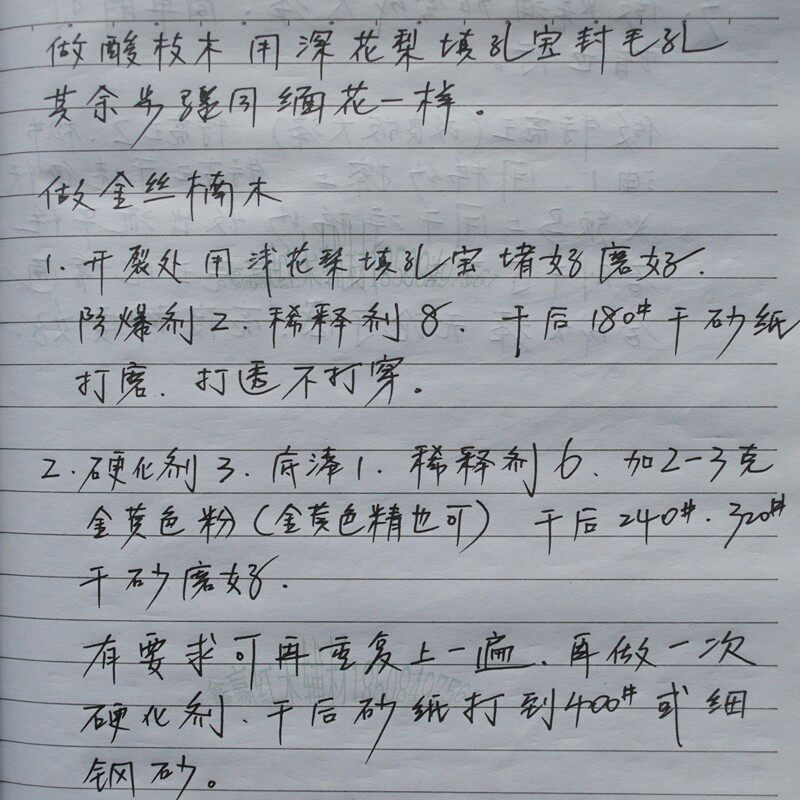 做酸枝木用深花梨填孔宝封毛孔
其余步骤同缅花一样。
做金丝楠木
1.开裂处用浅花梨填孔宝堵好磨好.
防爆剂2.稀释剂8.干后180#干砂纸
打磨.打透不打穿。
2.硬化剂3.底漆1.稀释剂6.加2-3克
金黄色粉(金黄色精也可)干后240#.320#
干砂磨好.
有要求可再重复上一遍.再做一次
硬化剂.干后砂纸打到400#或细
钢砂。